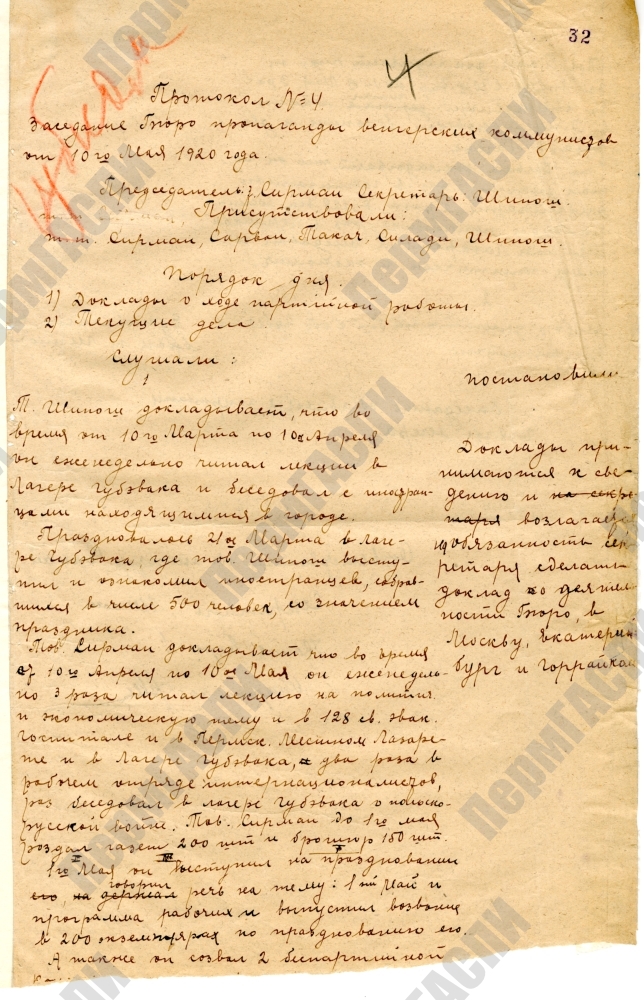 32
4
Протокол № 4.
Заседание Бюро пропаганды венгерских коммунистов
от 10го Мая 1920 года.
Председатель: т. Сирмаи Секретарь: Шиног.
Присутствовали:
т.т. Сирмаи, Сарваи, Такач, Силади, Шиног.
Порядок дня.
1) Доклады о ходе партийной работы.
2) Текущие дела.
Слушали:
1
Т. Шиног докладывает, что во
время от 10го Марта по 10ое Апреля
он еженедельно читал лекции в
Лагере Губэвака и беседовал с иностран-
цами находящимися в городе.
Праздновалось 21ое Марта в лаге-
ре Губэвака, где тов. Шиног высту-
пил и ознакомил иностранцев, собрав-
шимся в числе 500 человек, со значением
праздника.
Тов. Сирмаи докладывает что во время
от 10го Апреля по 10ое Мая он еженедель-
но 3 раза читал лекцию на политич.
и экономическую тему и в 128 св. эвак.
госпитале и в Пермск. Местном Лазаре-
те и в Лагере Губэвака, два раза в
рабочем отряде интернационалистов,
раз беседовал в лагере Губэвака о польско-
русской войне. Тов. Сирмаи до 1го мая
роздал газет 200 шт и брошюр 150 шт.
1го Мая он выступил на праздновании
его, на держал говорил речь на тему: 1ый Май и
программа рабочих и выпустил воззвание
в 200 экземплярах по празднованию его.
А также он созвал 2 беспартийной
постановили
Доклады при-
нимаются к све-
дению и на секре-
таря возлагается
обязанность сек-
ретаря сделать
доклад о деятель
ности Бюро, в
Москву, Екатерин
бург и горрайком
ПермГАСПИ
ПермГАСПИ
ПермГАСПИ
ПермГАСПИ
ПермГАСПИ
ПермГАСПИ